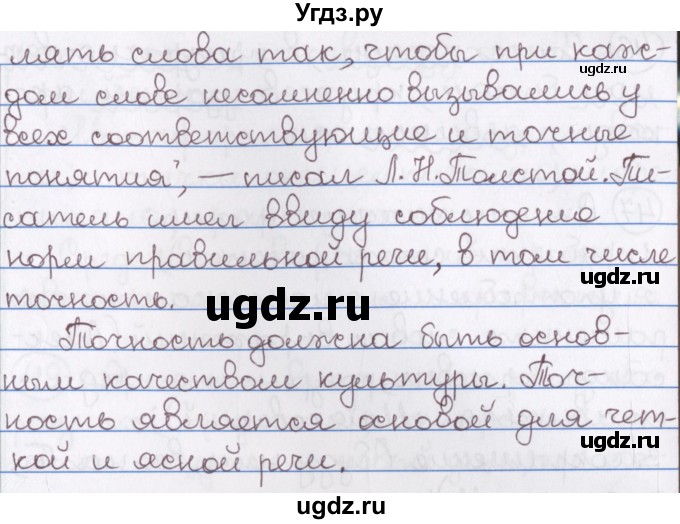 Угдз.ру
лять слова так, чтобы при каж-
дом слове несомненно вызывались у
всех соответствующие и точные
понятия", — писал Л. Н. Толстой. Пи-
сатель имел ввиду соблюдение
норм правильной речи, в том числе
точность.
Точность должна быть основ-
ным качеством культуры. Точ-
ность является основой для чет-
кой и ясной речи.
ugdz.ru
ugdz.ru
ugdz.ru
ugdz.ru
ugdz.ru
ugdz.ru
ugdz.ru
ugdz.ru